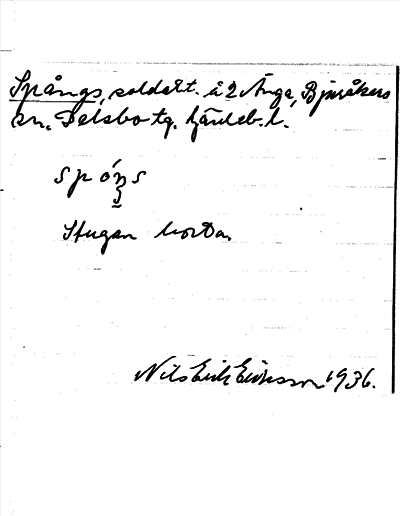 Spångs, soldatt. å 2 Änga, Bjuråkers
sn. Delsbo tg. Gävleb. l.
spóŋs
Stugan borta.
Nils Erik Eriksson 1936.